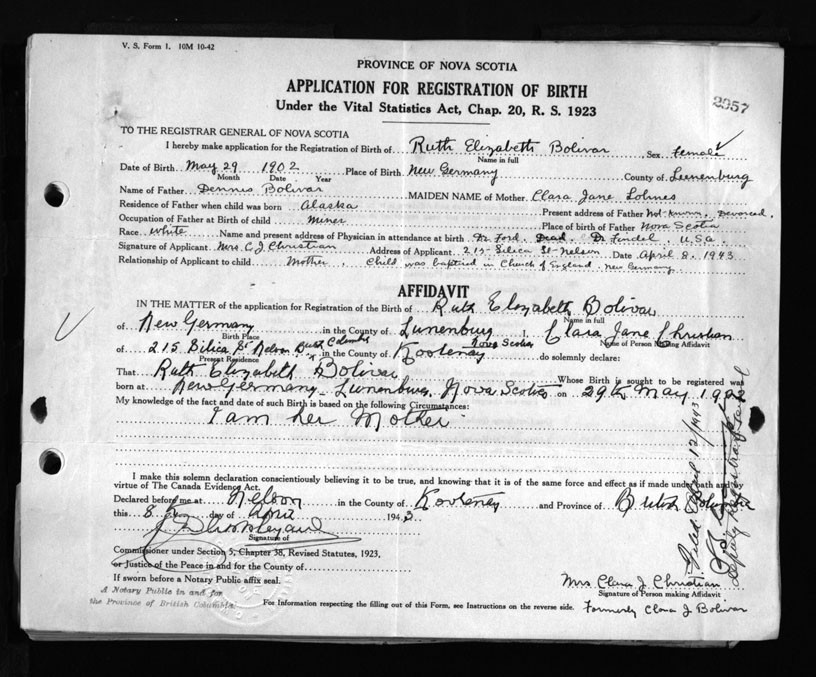 V. S. Form 1. 10M 10-42
PROVINCE OF NOVA SCOTIA
APPLICATION FOR REGISTRATION OF BIRTH
Under the Vital Statistics Act, Chap. 20, R. S. 1923
2957
TO THE REGISTRAR GENERAL OF NOVA SCOTIA
I hereby make application for the Registration of Birth of Ruth Elizabeth Bolivar, Sex Female
Name in full
Date of Birth May 29 1902 Place of Birth New Germany County of Lunenburg
Month Date Year
Name of Father Dennis Bolivar MAIDEN NAME of Mother Clara Jane Lohnes
Residence of Father when child was born Alaska Present address of Father Not known, Devorced,
Occupation of Father at Birth of child Miner Place of birth of Father Nova Scotia
Race White Name and present address of Physician in attendance at birth Dr Ford, Dead, Dr Findel, U.S.a.
Signature of Applicant Mrs C. J. Christian Address of Applicant 215 Silica St-Nelson Date April 8, 1943
Relationship of Applicant to child Mother. Child was baptized in Church of England. New Germany
AFFIDAVIT
IN THE MATTER of the application for Registration of the Birth of Ruth Elizabeth Bolivar
Name in full
of New Germany in the County of Lunenburg I, Clara Jane Christian
Birth Place Nova Scotia Name of Person Making Affidavit
of 215 Silica St Nelson in the County of Kootenay do solemnly declare:
Present Residence
That Ruth Elizabeth Bolivar Whose Birth is sought to be registered was
born at New Germany, Lunenburg, Nova Scotia on 29th May 1902
My knowledge of the fact and date of such Birth is based on the following Circumstances:
I am her Mother
I make this solemn declaration conscientiously believing it to be true, and knowing that it is of the same force and effect as if made under oath and by
virtue of The Canada Evidence Act.
Declared before me at Nelson in the County of Kootenay and Province of British Columbia
this 8th day of April 1943.
Signature of
Commissioner under Section 5, Chapter 38, Revised Statutes, 1923,
or Justice of the Peace in and for the County of
If sworn before a Notary Public affix seal.
A Notary Public in and for
the Province of British Columbia.
Mrs Clara J. Christian
Signature of Person making Affidavit
For Information respecting the filling out of this Form, see Instructions on the reverse side. Formerly Clara J Bolivar
Filed April 12/1943
Deputy Registrar General